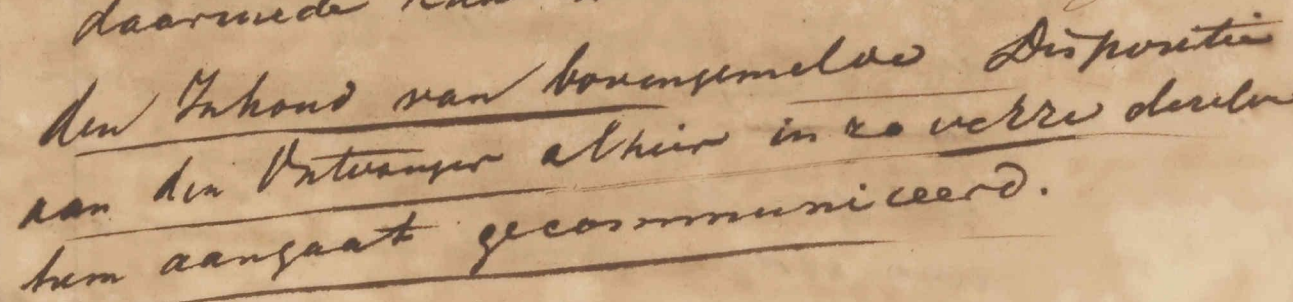 daarmede kan
den Inhoud van bovengemelde Dispositie
aan den Ontvanger alhier in zo verre deselve
hem aangaat gecommuniceerd.